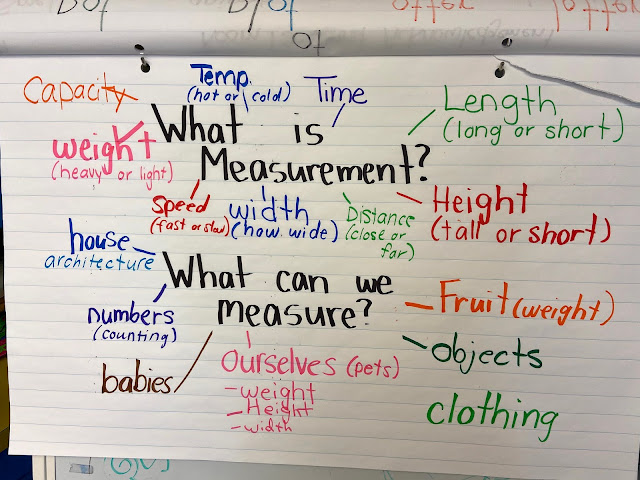 of
offer
Capacity
Temp.
(hot or cold)
Time
Length
(long or short)
What is
Measurement?
weight
(heavy or light)
Speed
(fast or slow)
width
(how wide)
Distance
(close or
far)
Height
(tall or short)
house
architecture
What can we
measure?
numbers
(counting)
babies
ourselves (pets)
- weight
- Height
- width
Fruit (weight)
objects
clothing